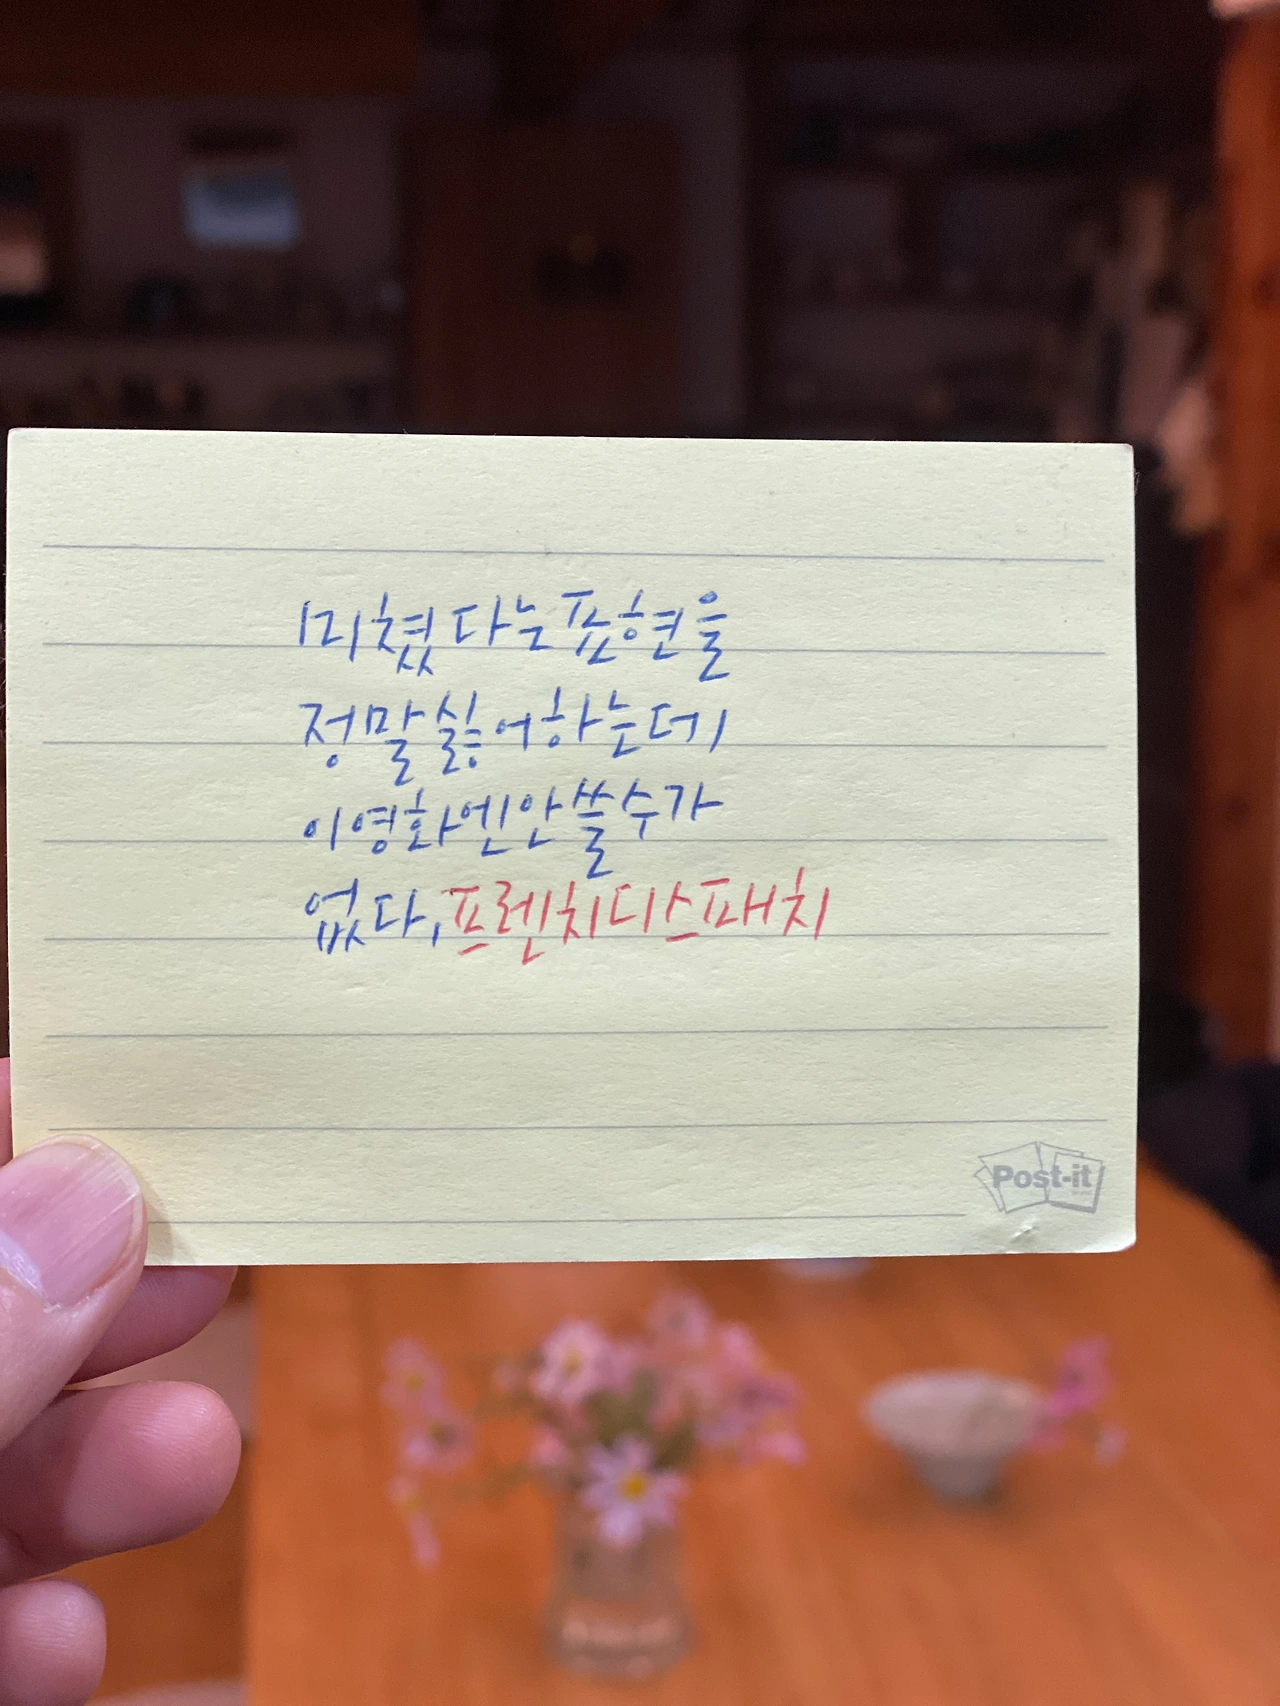 미쳤다는 표현을
정말 싫어하는데
이 영화엔 안 쓸 수가
없다, 프렌치 디스패치
Post-it